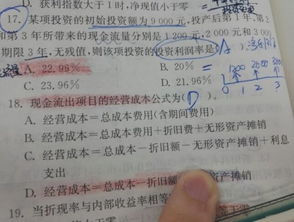 D. 获利指数大于1时,净现值小于零
17. 某项投资的初始投资额为9 000元,投产后第1年、第2
年和第3年所带来的现金流量分别是1 200元、2 000元和3 000
期限3年,无残值,则该项投资的投资利润率是
A. 22.96%
B. 20%
C. 23.96%
D. 21.96%
0 1 2 3
18. 现金流出项目的经营成本公式为(D)。
A. 经营成本=总成本费用(含期间费用)
B. 经营成本=总成本费用+折旧费+无形资产摊销
C. 经营成本=总成本+折旧额-无形资产摊销+利息
支出
D. 经营成本=总成本-折旧额 资产摊销
19. 当折现率与内部收益率相等